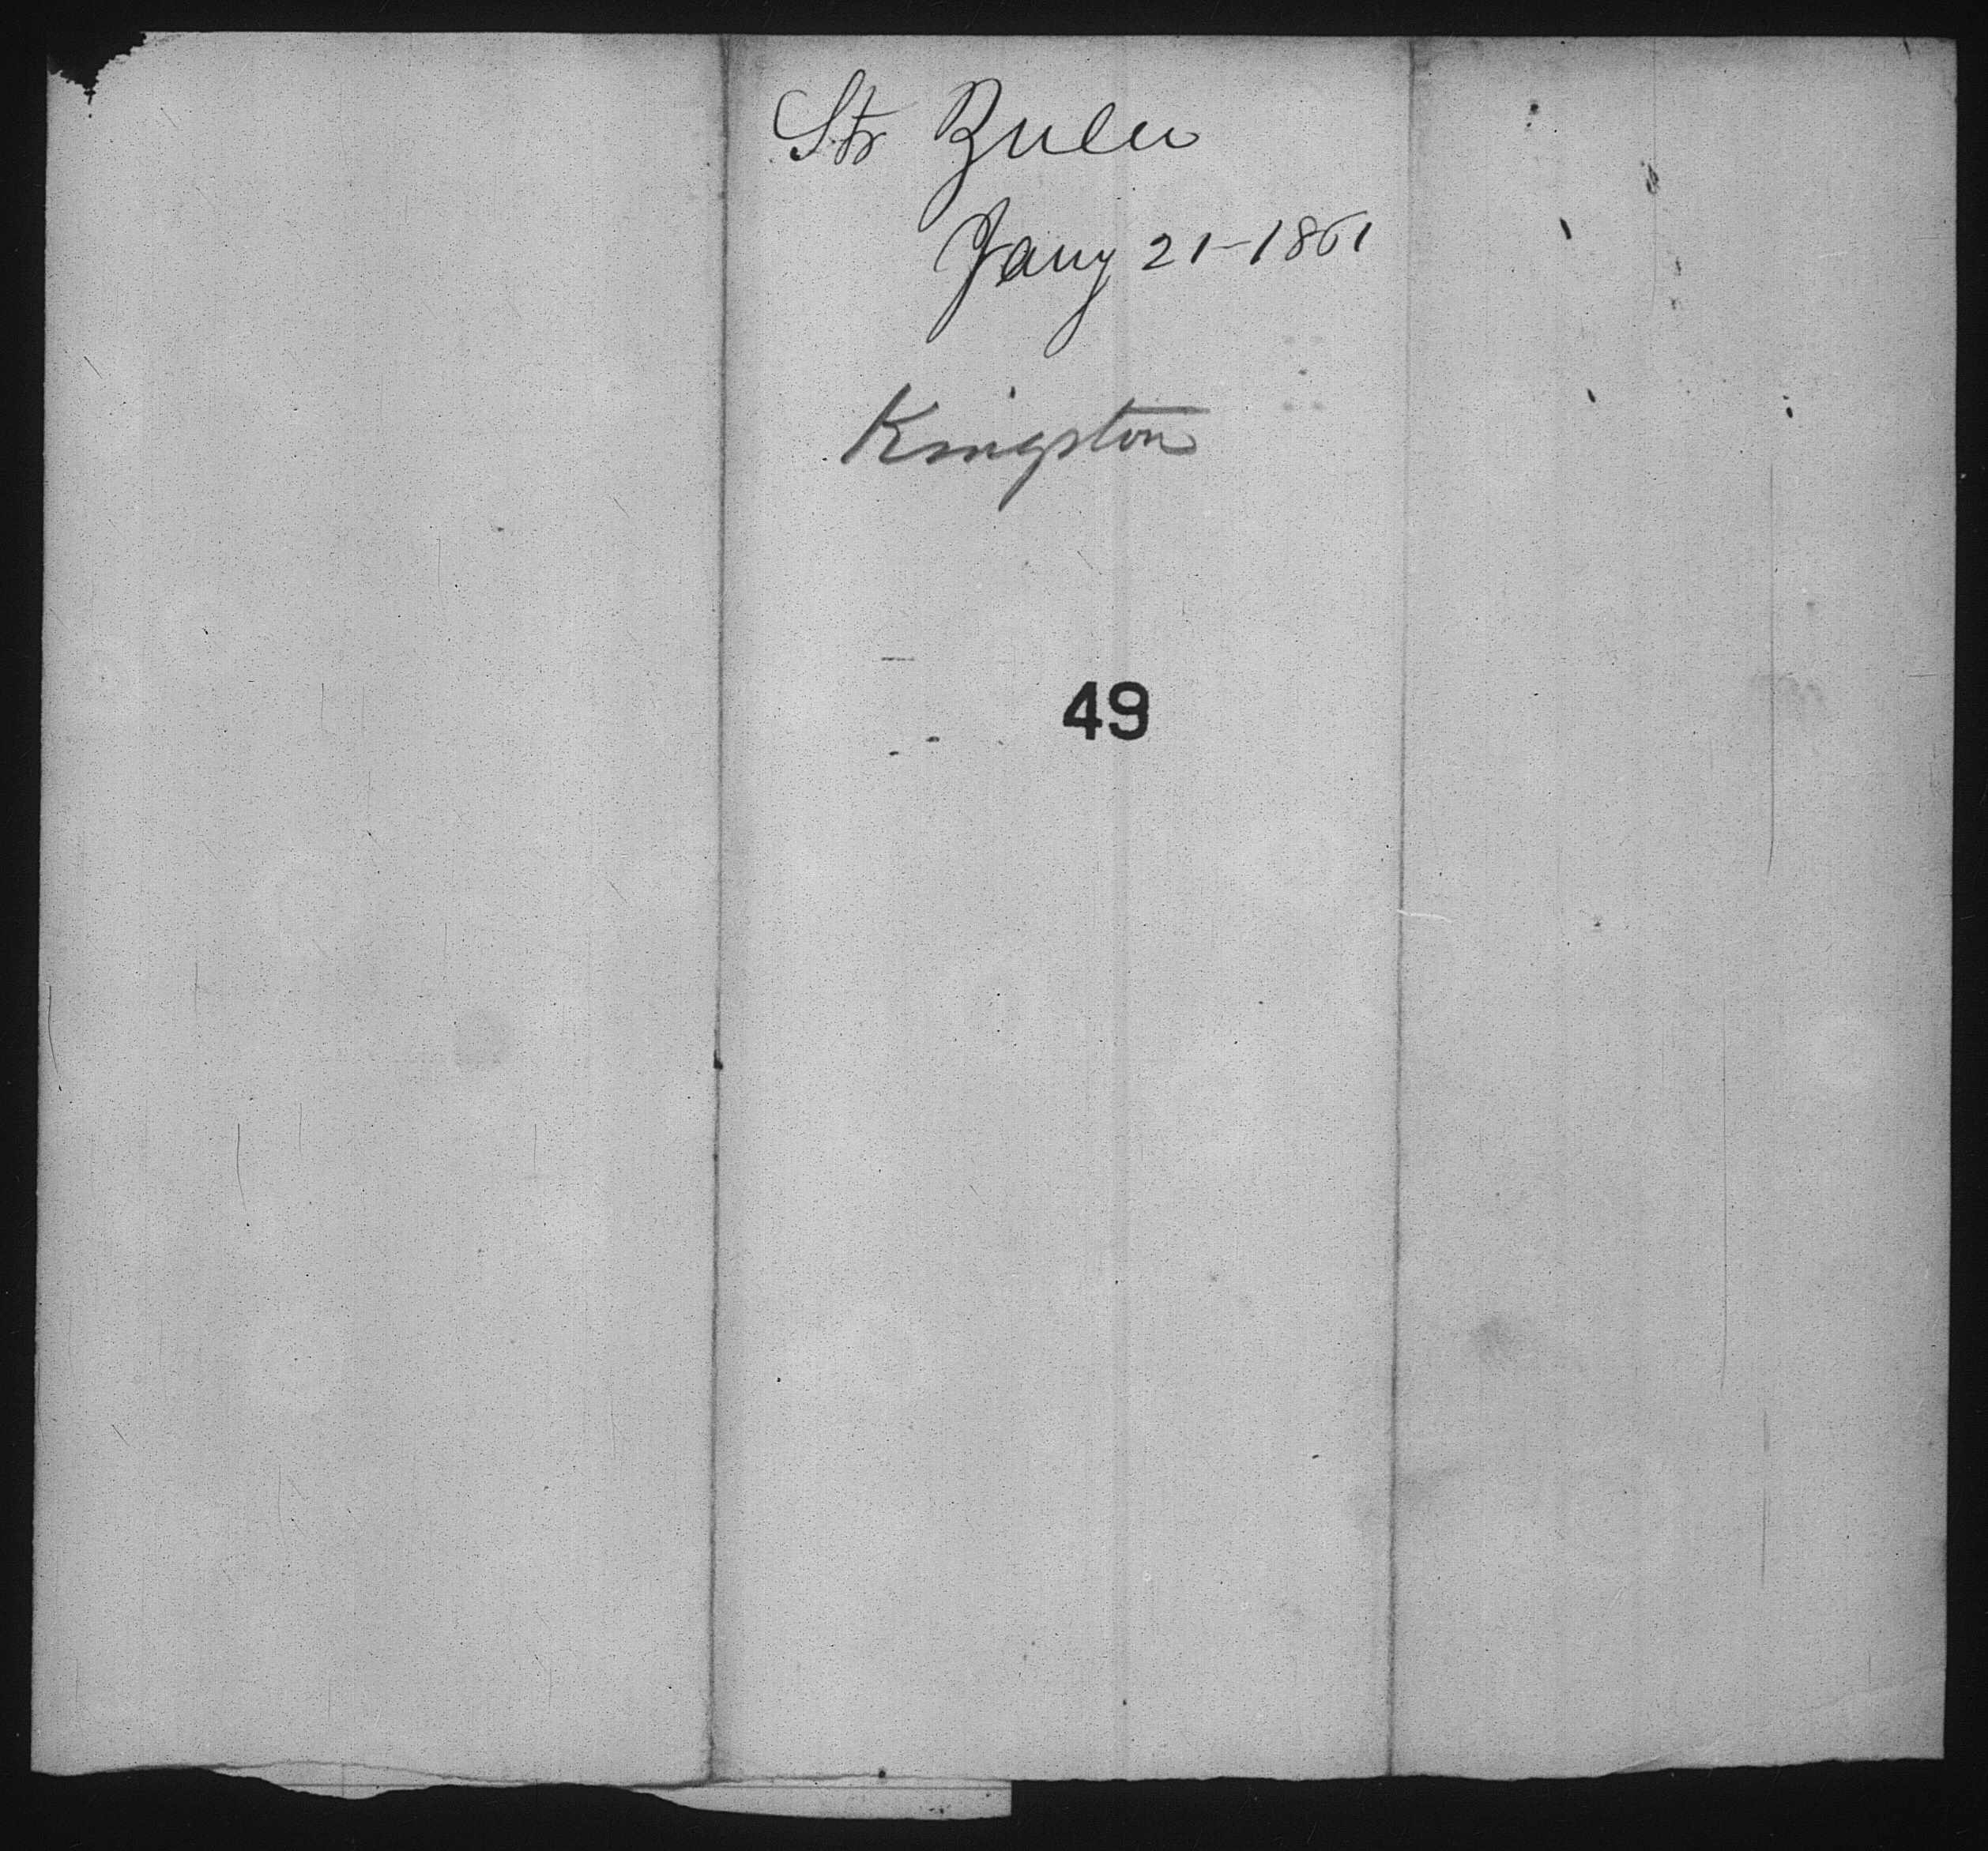 Str Zulu
Jany 21-1861
Kingston
49